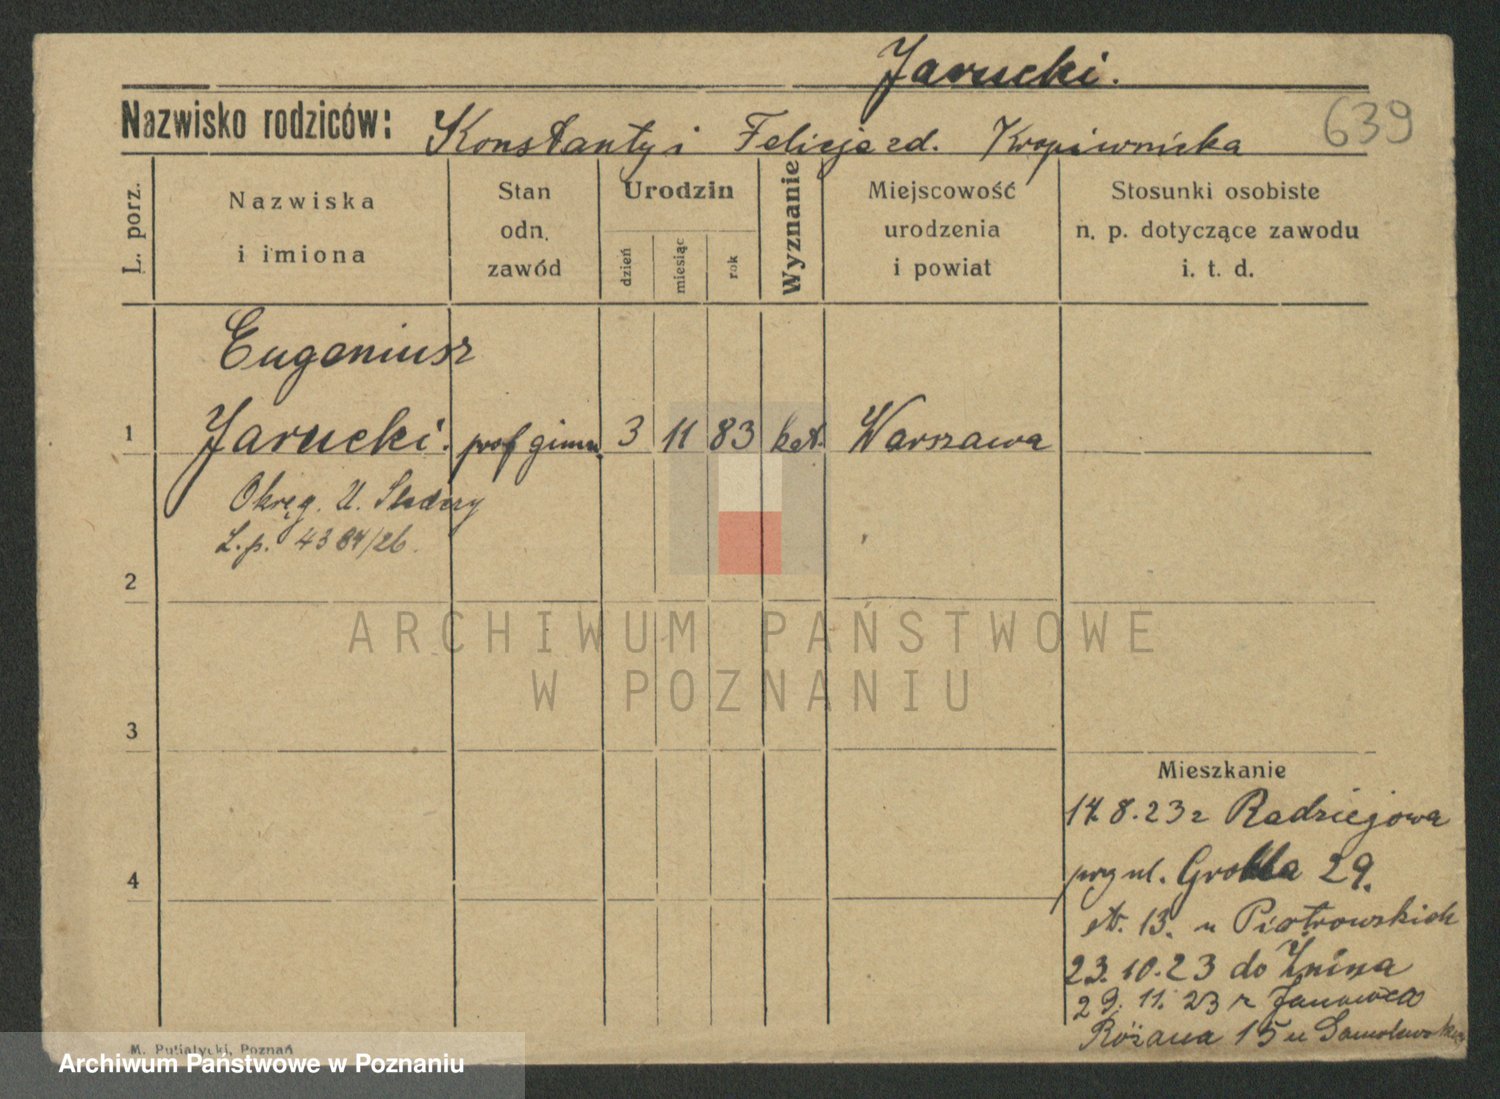 Jarucki.
Nazwisko rodziców: Konstanty i Felicja zd. Kropiwnicka
639
L. porz.
Nazwiska
i imiona
Stan
odn.
zawód
Urodzin
dzień
miesiąc
rok
Wyznanie
Miejscowość
urodzenia
i powiat
Stosunki osobiste
n. p. dotyczące zawodu
i. t. d.
Eugeniusz
1 Jarucki. prof gimn. 3 11 83 kat. Warszawa
Okręg. U. Śledczy
L. p. 4384/26.
2
ARCHIWUM PAŃSTWOWE
W POZNANIU
3
Mieszkanie
17.8.23 z Radziejowa
4
przy ul. Grobla 29.
13. u Piotrowskich
23.10.23 do Żnina
29.11.23 z Janowca
Różana 15 u
M. Putiatycki, Poznań
Archiwum Państwowe w Poznaniu